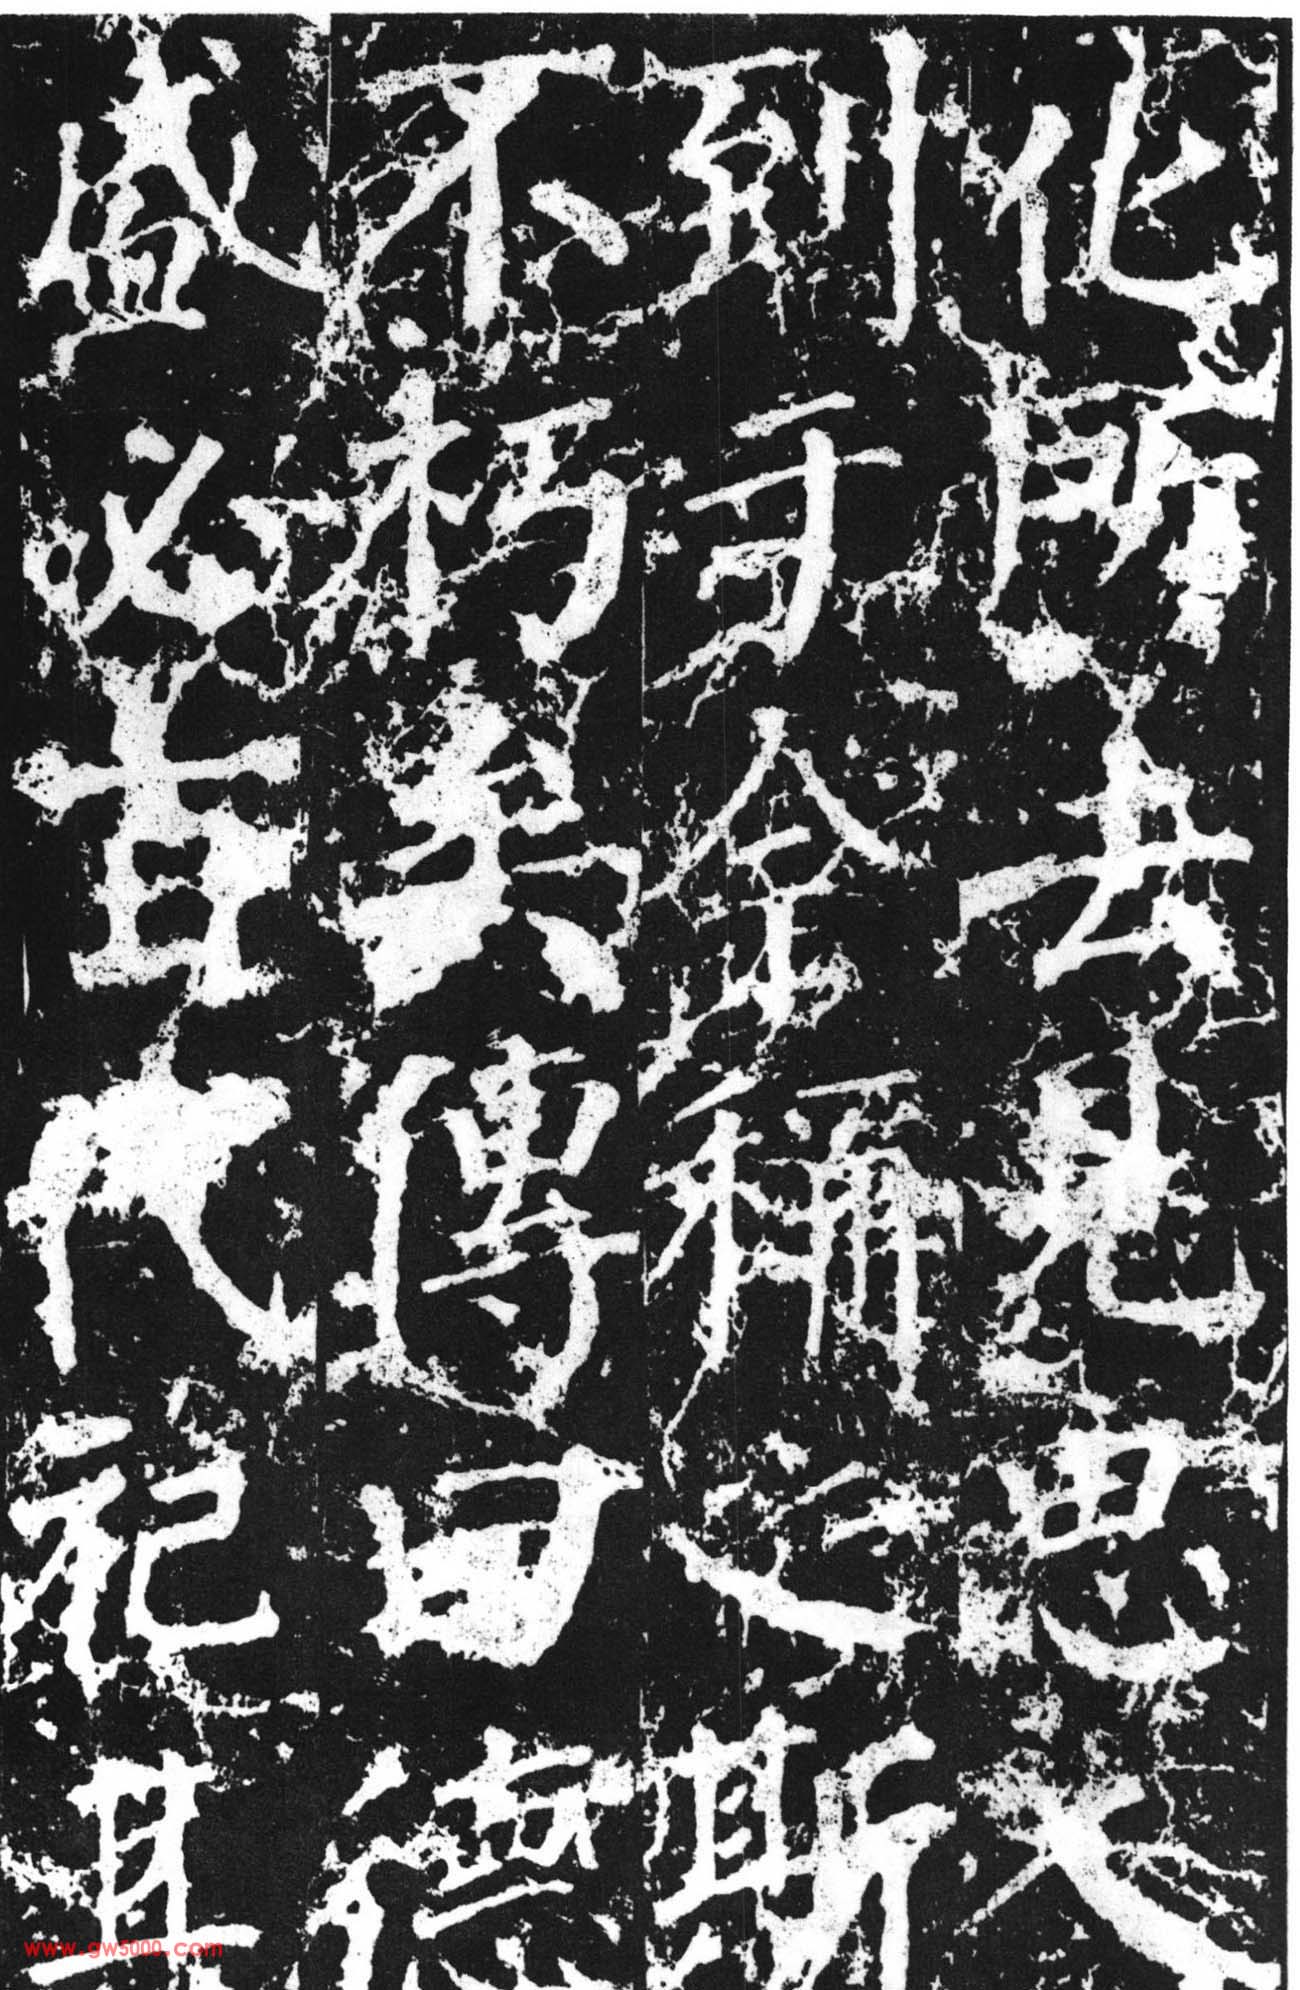 化所去見思人
到于今稱之斯
不朽矣傳曰德
盛必百代祀其
www.gw5000.com